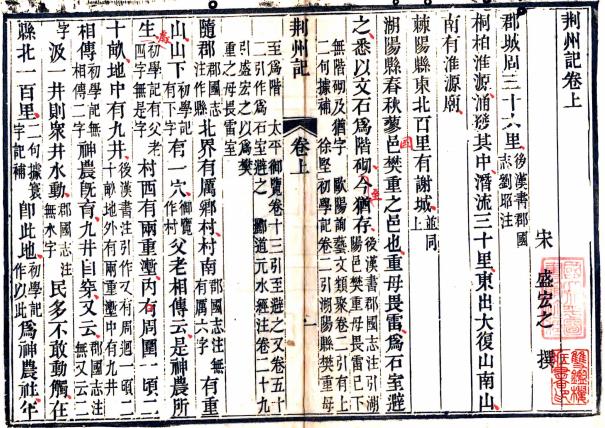 荆州記卷上
宋 盛宏之 撰
郡城周三十六里 後漢書郡國志劉昭注
桐柏淮源涌發其中潛流三十里東出大復山南山
南有淮源廟
棘陽縣東北百里有謝城 並同上
湖陽縣春秋蓼邑樊重之邑也重母畏雷爲石室避
國
之悉以文石爲階砌今猶存 後漢書郡國志注引湖陽邑樊重母畏雷已下
至
無階砌及猶字 歐陽詢藝文類聚卷二引有上
二句據補 徐堅初學記卷二引湖陽縣樊重母
荆州記 卷上 一
至爲階 太平御覽卷十三引至避之又卷五十
二引作爲石室避之 酈道元水經注卷二十九
引盛宏之以爲樊
重之母畏雷室
隨郡 郡國志注作縣 北界有厲鄉村村南 郡國志注無有厲六字 有重
山山下 初學記有下字 有一穴 御覽作村 父老相傳云是神農所
生 初學記有父老四字無是字 村西有兩重塹内有周圍一頃二
十畝地中有九井 後漢書注引作又有周迴一頃二十畝地外有兩重塹中有九井
相傳 初學記無相傳二字 神農旣育九井自穿又云 郡國志注無又云二
字 汲一井則衆井水動 郡國志注無水字 民多不敢動觸在
縣北一百里 二句據寰宇記補 卽此地 初學記作以此 爲神農社年